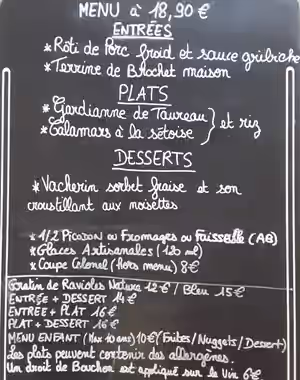 MENU à 18,90 €
ENTRÉES
* Rôti de Porc froid et sauce gribiche
* Terrine de Brochet maison
PLATS
* Gardianne de Taureau } et riz
* Calamars à la sétoise
DESSERTS
* Vacherin sorbet fraise et son
croustillant aux noisettes
* 1/2 PICODON ou FROMAGES ou Faisselle (AB)
* Glaces Artisanales (120 ml)
* Coupe Colonel (Hors menu) 8€
Gratin de Ravioles Nature 12€ / Bleu 15€
ENTRÉE + DESSERT 14€
ENTREE + PLAT 16€
PLAT + DESSERT 16€
MENU ENFANT (Max 10 ans) 10€ (Frites/Nuggets/Dessert)
Les plats peuvent contenir des allergènes.
Un droit de Bouchon est appliqué sur le Vin 6€